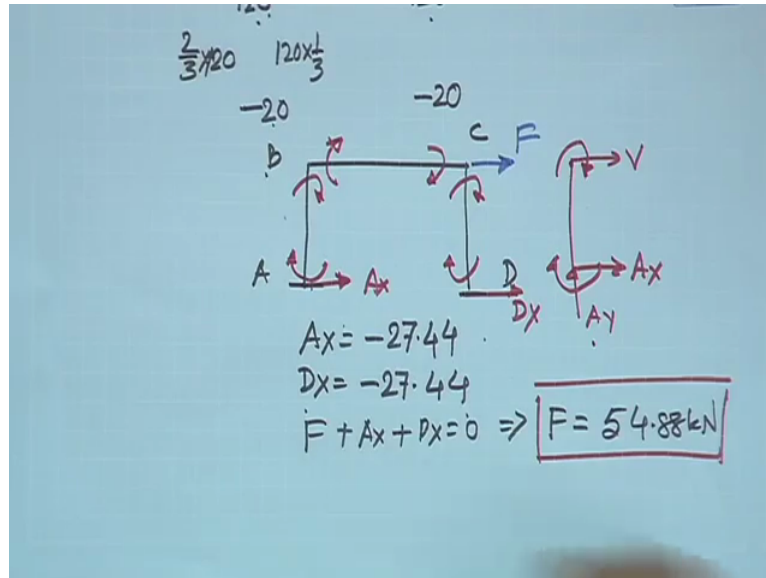 120
2/3×120 120×1/3
-20 -20
B C F V
A Ax D Dx Ax
Ay
Ax = -27.44
Dx = -27.44
F + Ax + Dx = 0 ⇒ F = 54.88kN